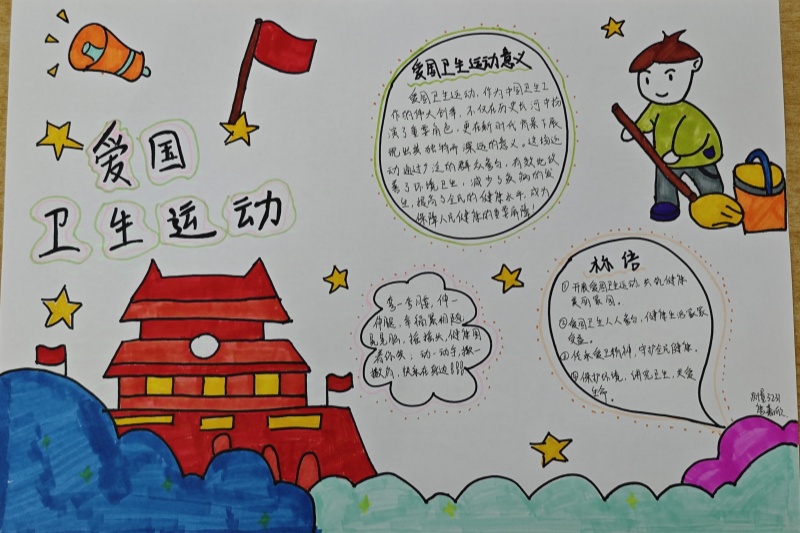 爱国
卫生运动
爱国卫生运动意义
爱国卫生运动，作为中国卫生工
作的伟大创举，不仅在历史长河中扮
演了重要角色，更在新时代背景下展
现出其独特而深远的意义。这场运
动通过广泛的群众参与，有效地改
善了环境卫生，减少了疾病的发
生，提高了全民的健康水平，成为
保障人民健康的重要屏障！
弯一弯腰，伸一
伸腿，幸福篇相随，
晃晃脑，摇摇头，健康围
着你走；动一动手，撒一
撒，快乐在身边！！！
标语
①开展爱国卫生运动，共筑健康
美丽家园。
②爱国卫生人人参与，健康生活家家
受益。
③传承爱卫精神，守护全民健康。
④保护环境，讲究卫生，关爱
生命。